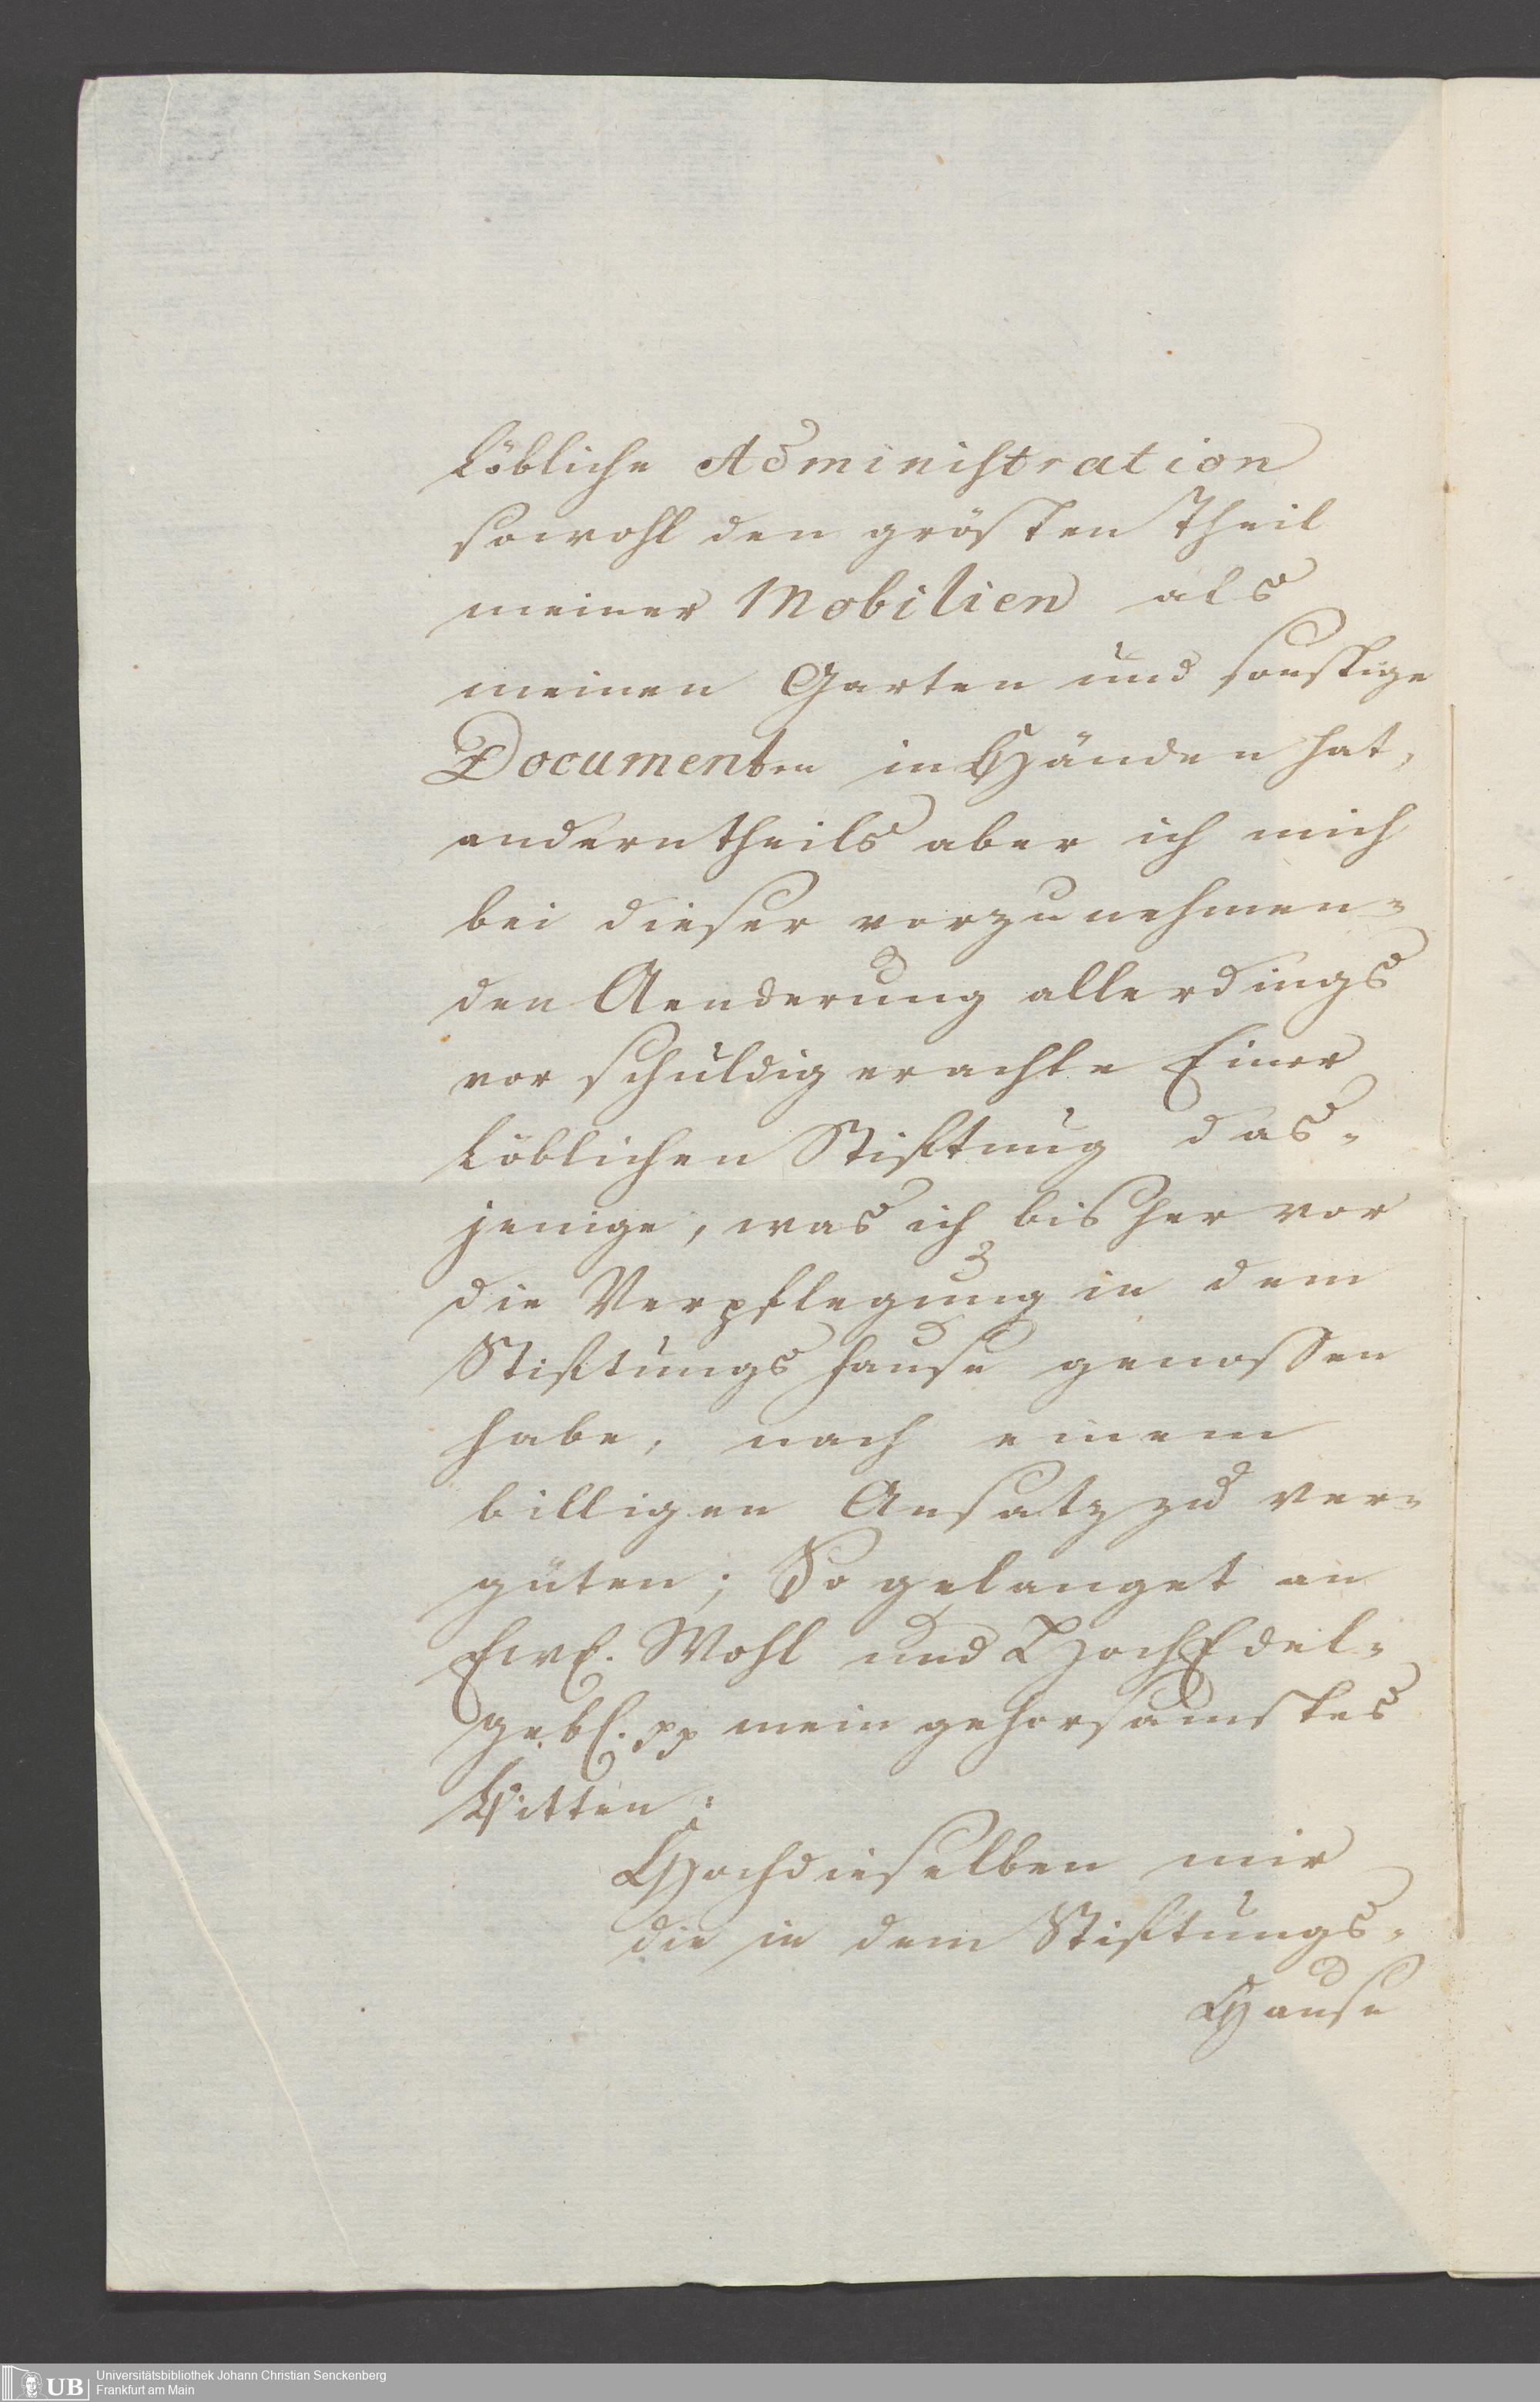 Löbliche Administration
sowohl den grösten Theil
meiner Mobilien als
meinen Garten und sonstige
Documenten in Händen hat,
anderntheils aber ich mich
bei dieser vorzunehmen-
den Aenderung allerdings
vor schuldig erachte Einer
Löblichen Stiftung das-
jenige, was ich bisher vor
die Verpflegung in dem
Stiftungshause genossen
habe, nach einem
billigen Ansatz zu ver-
güten; So gelanget an
Ewl. Wohl und HochEdel-
gebl. pp mein gehorsamstes
Bitten:
Hochdieselben mir
die in dem Stiftungs-
Hause
UB
Universitätsbibliothek Johann Christian Senckenberg
Frankfurt am Main